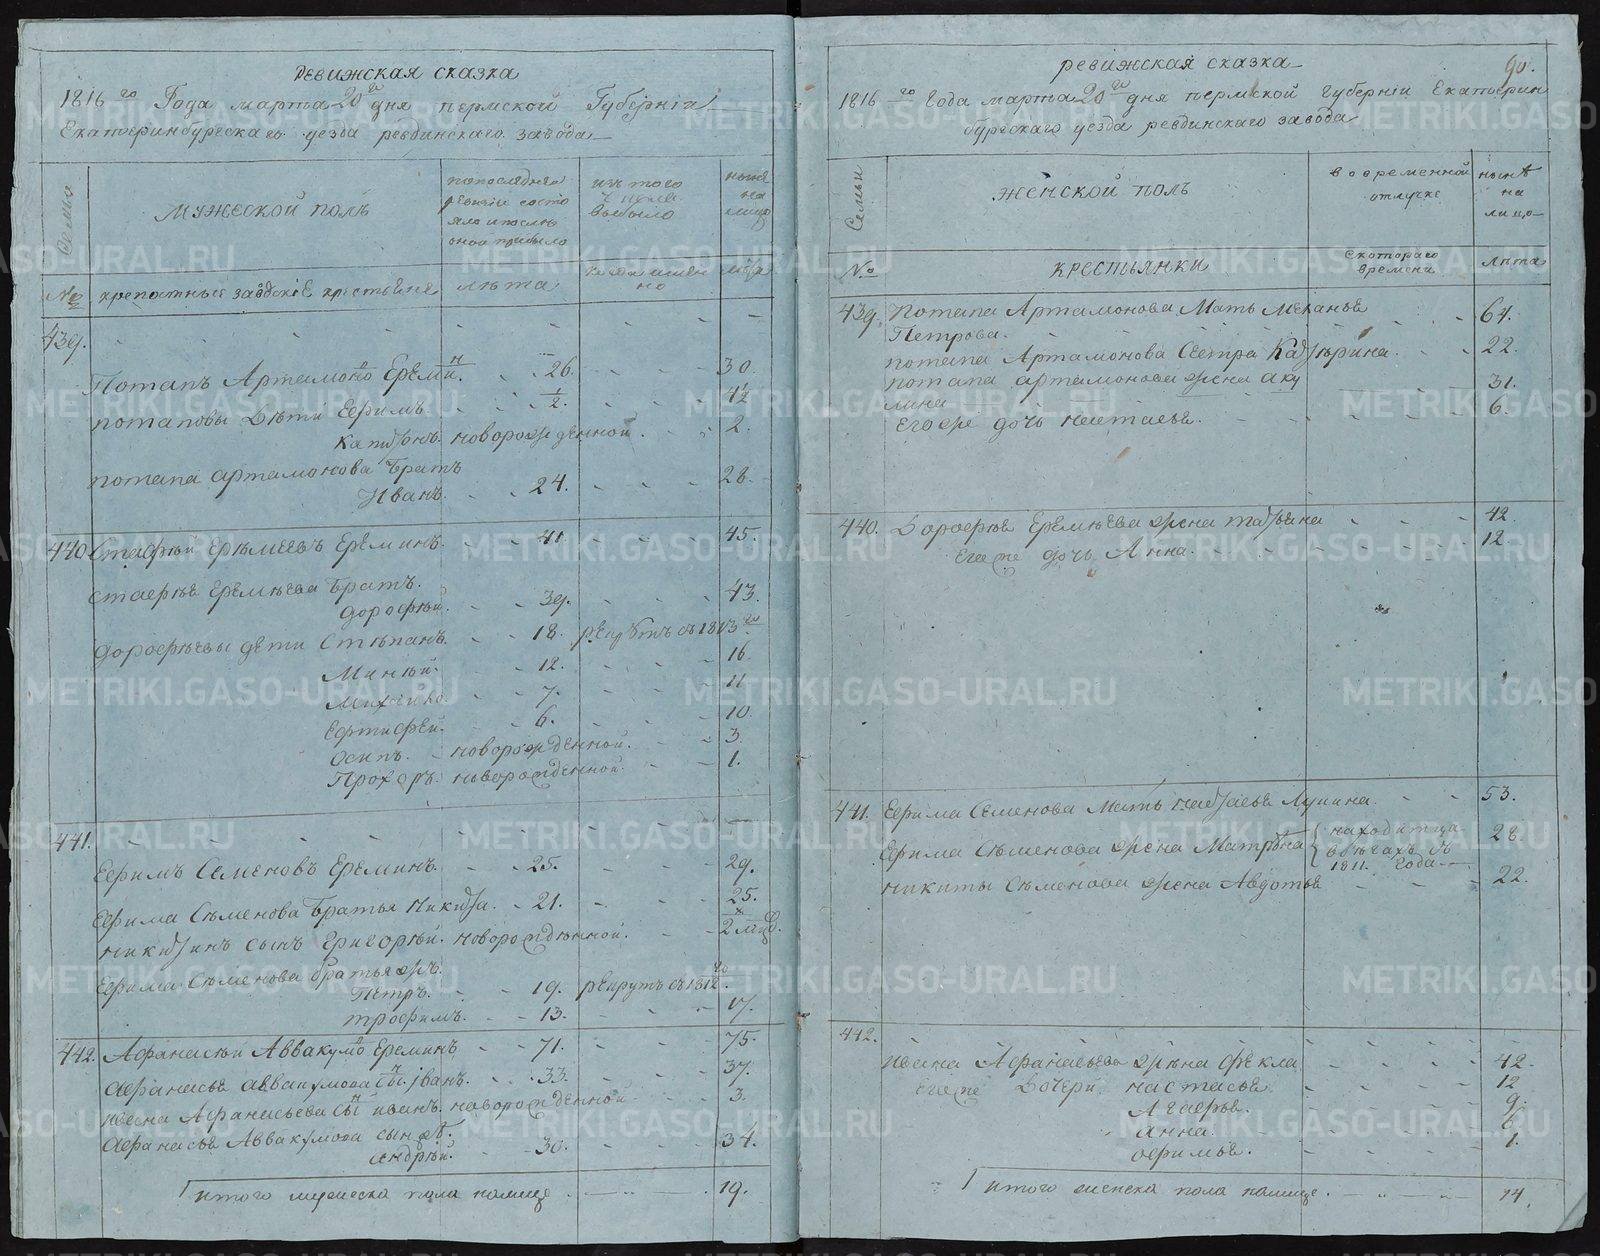 Ревижская сказка
1816 го Года марта 20 го дня пермской Губерніи
Екатеринбургскаго уезда ревдинскаго завода
Семьи
Мужеской полъ
попоследней ревизіи состояло и после оной прибыло
изъ того числа выбыло
ныне на лицо
№
крепостные заводскіе крестьяне
лѣта
когда именно
лѣта
439.
Потапъ Артамоно Еремин. 26. 30.
потаповы Дѣти Ефимъ. 1/2. 4 1/2
новорожденной. 2.
потапа артамонова Братъ
Иванъ. 24. 28.
440. Стафѣй Ерѣмеевъ Ереминъ. 41. 45.
стафѣя Еремѣева Братъ.
дорофѣй. 39. 43.
дорофѣевы дети Стѣпанъ. 18. рекрутъ съ 1813 го
Минѣй. 12. 16
Михайло. 7. 11
Ефтифей. 6. 10
Осипъ. новорожденной. 3.
Прохоръ. новорожденной. 1.
441.
Ефимъ Семеновъ Ереминъ. 25. 29.
Ефима Сѣменова Братья Никита. 21. 25.
никитинъ сынъ Григорѣй. новорождѣнной. 2 мѣс.
Ефима Сѣменова братья жъ.
Петръ. 19. рекрутъ съ 1812 го.
трофимъ. 13. 17.
442. Афанасѣй Аввакумо Ереминъ 71. 75.
Афанасья аввакумова Сы. іванъ. 33. 37.
ивана Афанасьева Сы иванъ. новорожденной 3.
Афанасья Аввакумова сынъ
андрѣй. 30. 34.
итого мужеска пола налице 19.
ревижская сказка
90.
1816 го года марта 20 го дня пермской губерніи Екатерин
бургскаго уезда ревдинскаго завода
Семьи
Женской полъ
во временной отлучке
нынѣ на лицо
№
крестьянки
с котораго времени
лѣта
439. Потапа Артамонова Мать Меланья 64.
Петрова.
потапа Артамонова Сестра Катѣрина. 22.
потапа артамонова жена аку 31.
лина
Егоже дочь настасья. 6.
440. Дорофѣя Еремѣева жена татьяна 42.
Егоже дочь Анна. 12.
441. Ефима Семенова Мать Лупина. 53.
Ефима Сѣменова жена Матрѣна находитца в бѣгахъ съ 1811. Года 28.
никиты Сѣменова жена Авдотья 22.
442.
ивана Афанасьева жѣна фекла 42.
Егоже Дочери настасья. 12
Агафья. 9.
анна. 6
офимья. 1.
итого женска пола налице. 14.
METRIKI.GASO-URAL.RU